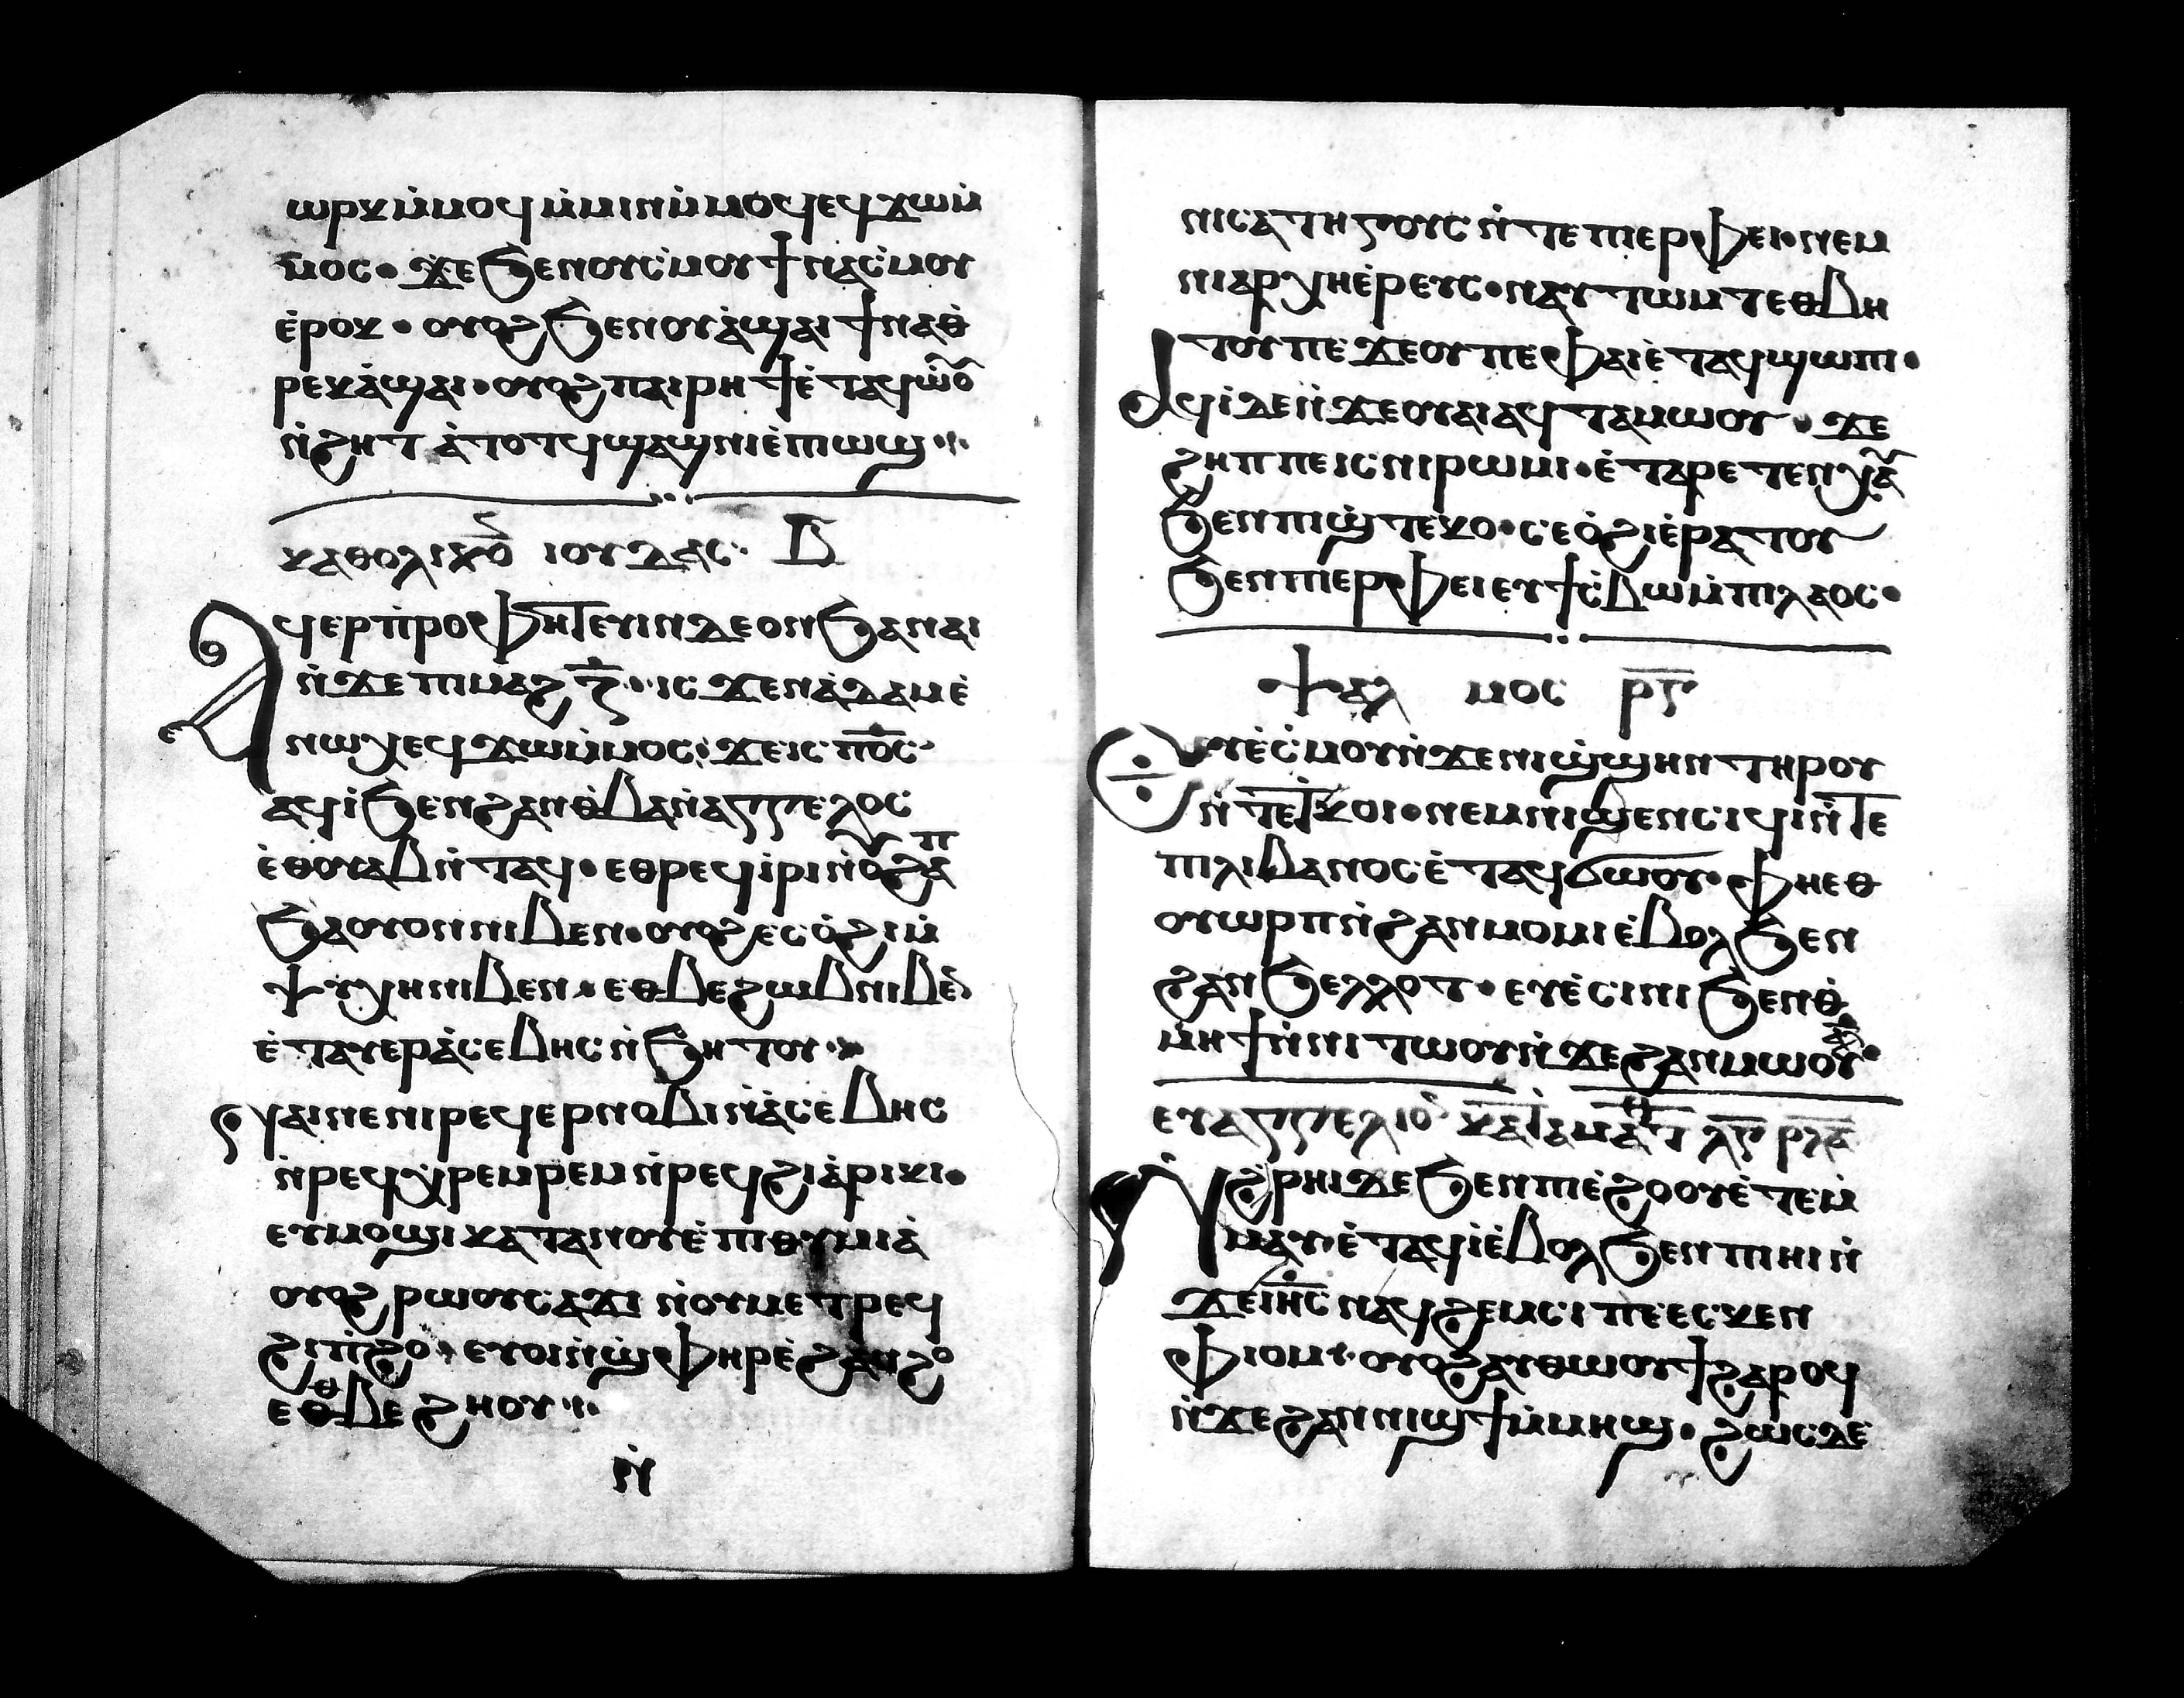 ⲱⲣⲕ ⲙ̇ⲙⲟϥ ⲙ̇ⲙⲓⲛ ⲙ̇ⲙⲟϥ ⲉϥϫⲱ ⲙ̇
ⲙⲟⲥ · ϫⲉ ϧⲉⲛ ⲟⲩⲥ̇ⲙⲟⲩ ϯⲛⲁⲥ̇ⲙⲟⲩ
ⲉ̇ⲣⲟⲕ · ⲟⲩⲟϩ ϧⲉⲛ ⲟⲩⲁ̇ϣⲁⲓ ϯⲛⲁⲑ
ⲣⲉⲕⲁ̇ϣⲁⲓ · ⲟⲩⲟϩ ⲡⲁⲓⲣⲏϯ ⲉ̇ⲧⲁϥⲱ̇ⲟ̅
ⲛ̇ϩⲏⲧ ⲁ̇ⲧⲟⲧϥ ϣⲁϣⲛⲓ ⲉ̇ⲡⲓⲱϣ ·:·
ⲕⲁⲑⲟⲗⲓⲕⲟ̅ ⲓⲟⲩⲇⲁⲥ · ⲃ
ⲁϥⲉⲣⲡⲣⲟⲫⲏⲧⲉⲩⲓⲛ ⲇⲉ ⲟⲛ ϧⲁ ⲛⲁⲓ
ⲛ̇ϫⲉ ⲡⲓⲙⲁϩ ⲍ̅ · ⲓⲥϫⲉⲛ ⲁ̇ⲇⲁⲙ ⲉ̇
ⲛⲱⲭ ⲉϥϫⲱ ⲙ̇ⲙⲟⲥ · ϫⲉ ⲓⲥ ⲡⲟ̅ⲥ̅
ⲁϥⲓ̇ ϧⲉⲛ ϩⲁⲛⲑ̇ⲃⲁ ⲛ̇ⲁⲅⲅⲉⲗⲟⲥ
ⲉ̇ⲑⲟⲩⲁⲃ ⲛ̇ⲧⲁϥ · ⲉⲑⲣⲉϥⲓ̇ⲣⲓ ⲛ̇ⲟⲩϩⲁⲡ
ϧⲁ ⲟⲩⲟⲛ ⲛⲓⲃⲉⲛ · ⲟⲩⲟϩ ⲉⲥⲟ̇ϩⲓ ⲙ̇
ⲯⲩⲭⲏ ⲛⲓⲃⲉⲛ · ⲉⲑⲃⲉ ϩⲱⲃ ⲛⲓⲃⲉ̅
ⲉ̇ⲧⲁⲩⲉⲣⲁ̇ⲥⲉⲃⲏⲥ ⲛ̇ϧⲏⲧⲟⲩ ·
ⲛⲁⲓ ⲛⲉ ⲛⲓⲣⲉϥⲉⲣⲛⲟⲃⲓ ⲛ̇ⲁ̇ⲥⲉⲃⲏⲥ
ⲛ̇ⲣⲉϥⲭ̇ⲣⲉⲙⲣⲉⲙ ⲛ̇ⲣⲉϥϩⲓⲁ̇ⲣⲓⲕⲓ ·
ⲉⲩⲙⲟϣⲓ ⲕⲁⲧⲁ ⲛⲟⲩⲉ̇ⲡⲓⲑⲩⲙⲓⲁ̇
ⲟⲩⲟϩ ⲣⲱⲟⲩ ⲥⲁϫⲓ ⲛ̇ⲟⲩⲙⲉⲧⲣⲉϥ
ϩⲓⲡ̇ϩⲟ · ⲉⲩⲟⲓ ⲛ̇ϣ̇ⲫⲏⲣⲉ̇ ϩⲁⲛϩⲟ
ⲉⲑⲃⲉ ϩⲏⲟⲩ ·:·
ⲛ̇
ⲛⲓⲥⲁⲧⲏⲅⲟⲩⲥ ⲛ̇ⲧⲉ ⲡⲓⲉⲣⲫⲉⲓ · ⲛⲉⲙ
ⲛⲓⲁⲣⲭⲏⲉ̇ⲣⲉⲩⲥ · ⲛⲁⲩⲧⲱⲙⲧ ⲉⲑⲃⲏ
ⲧⲟⲩ ⲡⲉ ϫⲉ ⲟⲩ ⲡⲉ ⲫⲁⲓ ⲉ̇ⲧⲁϥϣⲱⲡⲓ ·
ⲁϥⲓ̇ ⲇⲉ ⲛ̇ϫⲉ ⲟⲩⲁⲓ ⲁϥⲧⲁⲙⲱⲟⲩ · ϫⲉ
ϩⲏⲡⲡⲉ ⲓⲥ ⲛⲓⲣⲱⲙⲓ · ⲉ̇ⲧⲁⲣⲉⲧⲉⲛⲭⲁⲩ
ϧⲉⲛ ⲡⲓϣ̇ⲧⲉⲕⲟ · ⲥⲉⲟ̇ϩⲓ ⲉ̇ⲣⲁⲧⲟⲩ
ϧⲉⲛ ⲡⲓⲉⲣⲫⲉⲓ ⲉⲩϯⲥ̇ⲃⲱ ⲙ̇ⲡⲓⲗⲁⲟⲥ ·
ⲯⲁⲗⲙⲟⲥ ⲣ̅ⲅ̅
ⲉⲩⲉ̇ⲥ̇ⲙⲟⲩ ⲛ̇ϫⲉ ⲛⲓϣ̇ϣⲏⲛ ⲧⲏⲣⲟⲩ
ⲛ̇ⲧⲉ ⲧⲕⲟⲓ · ⲛⲉⲙ ⲛⲓϣⲉⲛⲥⲓϥⲓ ⲛ̇ⲧⲉ
ⲡⲓⲗⲓⲃⲁⲛⲟⲥ ⲉ̇ⲧⲁϥϭⲱⲟⲩ · ⲫⲏⲉⲑ
ⲟⲩⲱⲣⲡ ⲛ̇ϩⲁⲛⲙⲟⲩⲙⲓ ⲉ̇ⲃⲟⲗ ϧⲉⲛ
ϩⲁⲛϧⲉⲗⲗⲟⲧ · ⲉⲩⲉ̇ⲥⲓⲛⲓ ϧⲉⲛ ⲑ̇
ⲙⲏϯ ⲛ̇ⲛⲓⲧⲱⲟⲩ ⲛ̇ϫⲉ ϩⲁⲛⲙⲱⲟⲩ ·
ⲉⲩⲁⲅⲅⲉⲗⲓⲟ̅ ⲕⲁⲧⲁ ⲙⲁⲧ ⲗ̅ⲅ̅ ⲣ̅ⲗ̅ⲁ̅
ⲛ̇ϩ̇ⲣⲏⲓ ⲇⲉ ϧⲉⲛ ⲡⲓⲉ̇ϩⲟⲟⲩ ⲉ̇ⲧⲉⲙ̇
ⲙⲁⲩ ⲉ̇ⲧⲁϥⲓ̇ ⲉ̇ⲃⲟⲗ ϧⲉⲛ ⲡⲓⲏⲓ ⲛ̇
ϫⲉ ⲓ̅ⲏ̅ⲥ̅ ⲛⲁϥϩⲉⲙⲥⲓ ⲡⲉ ⲉⲥⲕⲉⲛ
ⲫⲓⲟⲙ · ⲟⲩⲟϩ ⲁⲩⲑⲱⲟⲩϯ ϩⲁⲣⲟϥ
ⲛ̇ϫⲉ ϩⲁⲛⲛⲓϣϯ ⲙ̇ⲙⲏϣ · ϩⲱⲥⲇⲉ